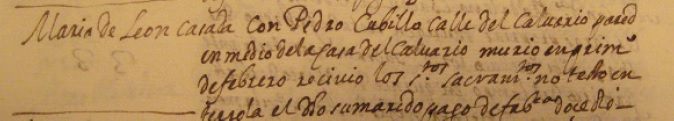 Maria de Leon casada con Pedro Cubillo calle del Calvario pared
en medio de la casa del Calvario murio en prim.o
de febrero recivio los s.tos sacram.tos no testo en
terrola el dho su marido pago de fab.ca doce Rs